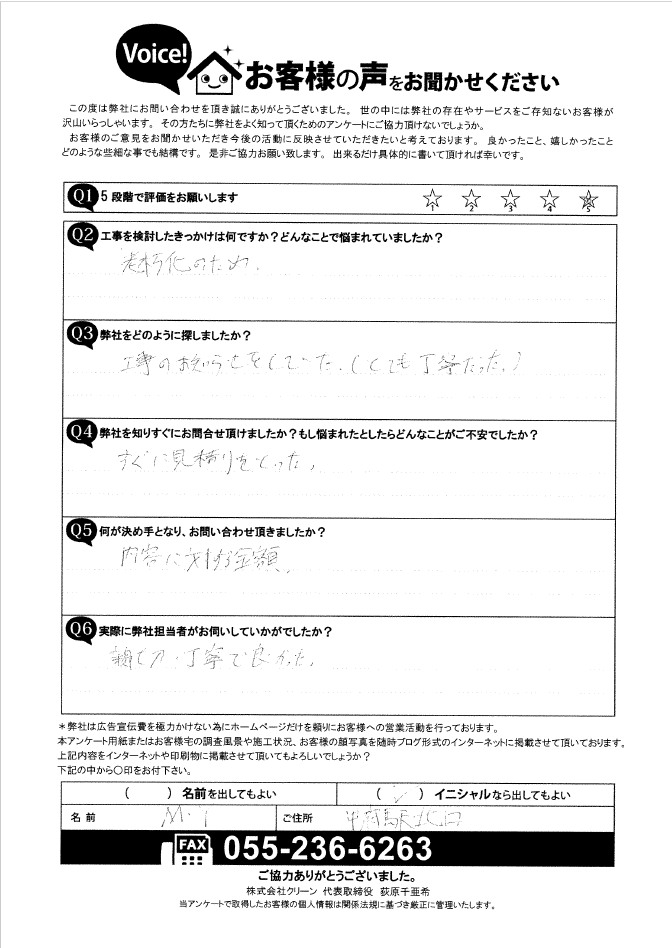 Voice! お客様の声をお聞かせください
この度は弊社にお問い合わせを頂き誠にありがとうございました。 世の中には弊社の存在やサービスをご存知ないお客様が
沢山いらっしゃいます。 その方たちに弊社をよく知って頂くためのアンケートにご協力頂けないでしょうか。
お客様のご意見をお聞かせいただき今後の活動に反映させていただきたいと考えております。 良かったこと、嬉しかったこと
どのような些細な事でも結構です。 是非ご協力お願い致します。 出来るだけ具体的に書いて頂ければ幸いです。
Q1 5 段階で評価をお願いします ☆1 ☆2 ☆3 ☆4 ☆5
Q2 工事を検討したきっかけは何ですか？どんなことで悩まれていましたか？
老朽化のため.
Q3 弊社をどのように探しましたか？
工事のお知らせをしていった.(とても丁寧だった。)
Q4 弊社を知りすぐにお問合せ頂けましたか？もし悩まれたとしたらどんなことがご不安でしたか？
すぐに見積りをとった。
Q5 何が決め手となり、お問い合わせ頂きましたか？
内容に対する金額.
Q6 実際に弊社担当者がお伺いしていかがでしたか？
親切・丁寧で良かった.
＊弊社は広告宣伝費を極力かけない為にホームページだけを頼りにお客様への営業活動を行っております。
本アンケート用紙またはお客様宅の調査風景や施工状況、お客様の顔写真を随時ブログ形式のインターネットに掲載させて頂いております。
上記内容をインターネットや印刷物に掲載させて頂いてもよろしいでしょうか？
下記の中から〇印をお付下さい。
（　　）名前を出してもよい （　　）イニシャルなら出してもよい
名 前 M・I ご住所 甲府駅北口
FAX 055-236-6263
ご協力ありがとうございました。
株式会社クリーン 代表取締役 荻原千亜希
当アンケートで取得したお客様の個人情報は関係法規に基づき厳正に管理いたします。